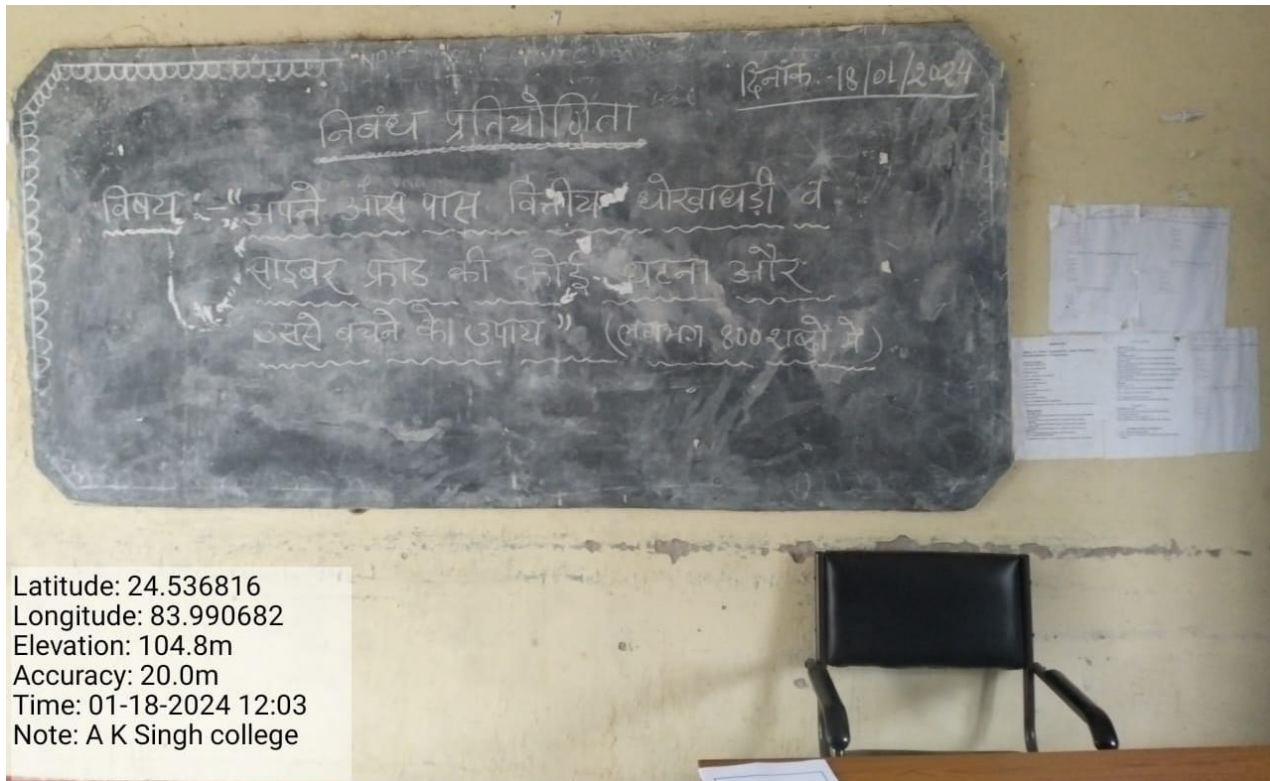 दिनांक:-18/01/2024
निबंध प्रतियोगिता
विषय :- "अपने आस पास वित्तीय धोखाधड़ी व
साइबर फ्राड की कोई घटना और
उससे बचने का उपाय" (लगभग 800 शब्दों में)
Latitude: 24.536816
Longitude: 83.990682
Elevation: 104.8m
Accuracy: 20.0m
Time: 01-18-2024 12:03
Note: A K Singh college